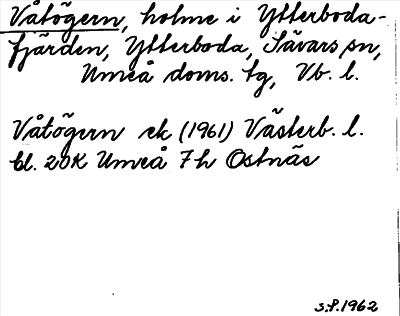 Våtögern, holme i Ytterboda-
fjärden, Ytterboda, Sävars sn,
Umeå doms. tg, Vb. l.
Våtögern ek (1961) Västerb. l.
bl. 20K Umeå 7h Ostnäs
S.F. 1962